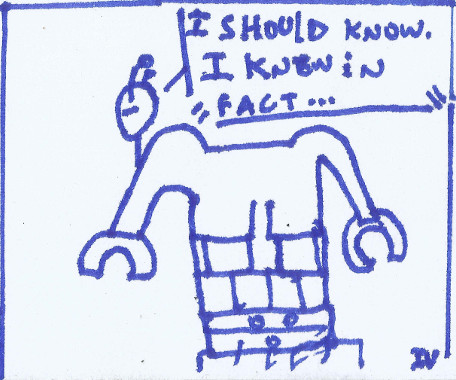 I SHOULD KNOW.
I KNEW IN
FACT...
IV